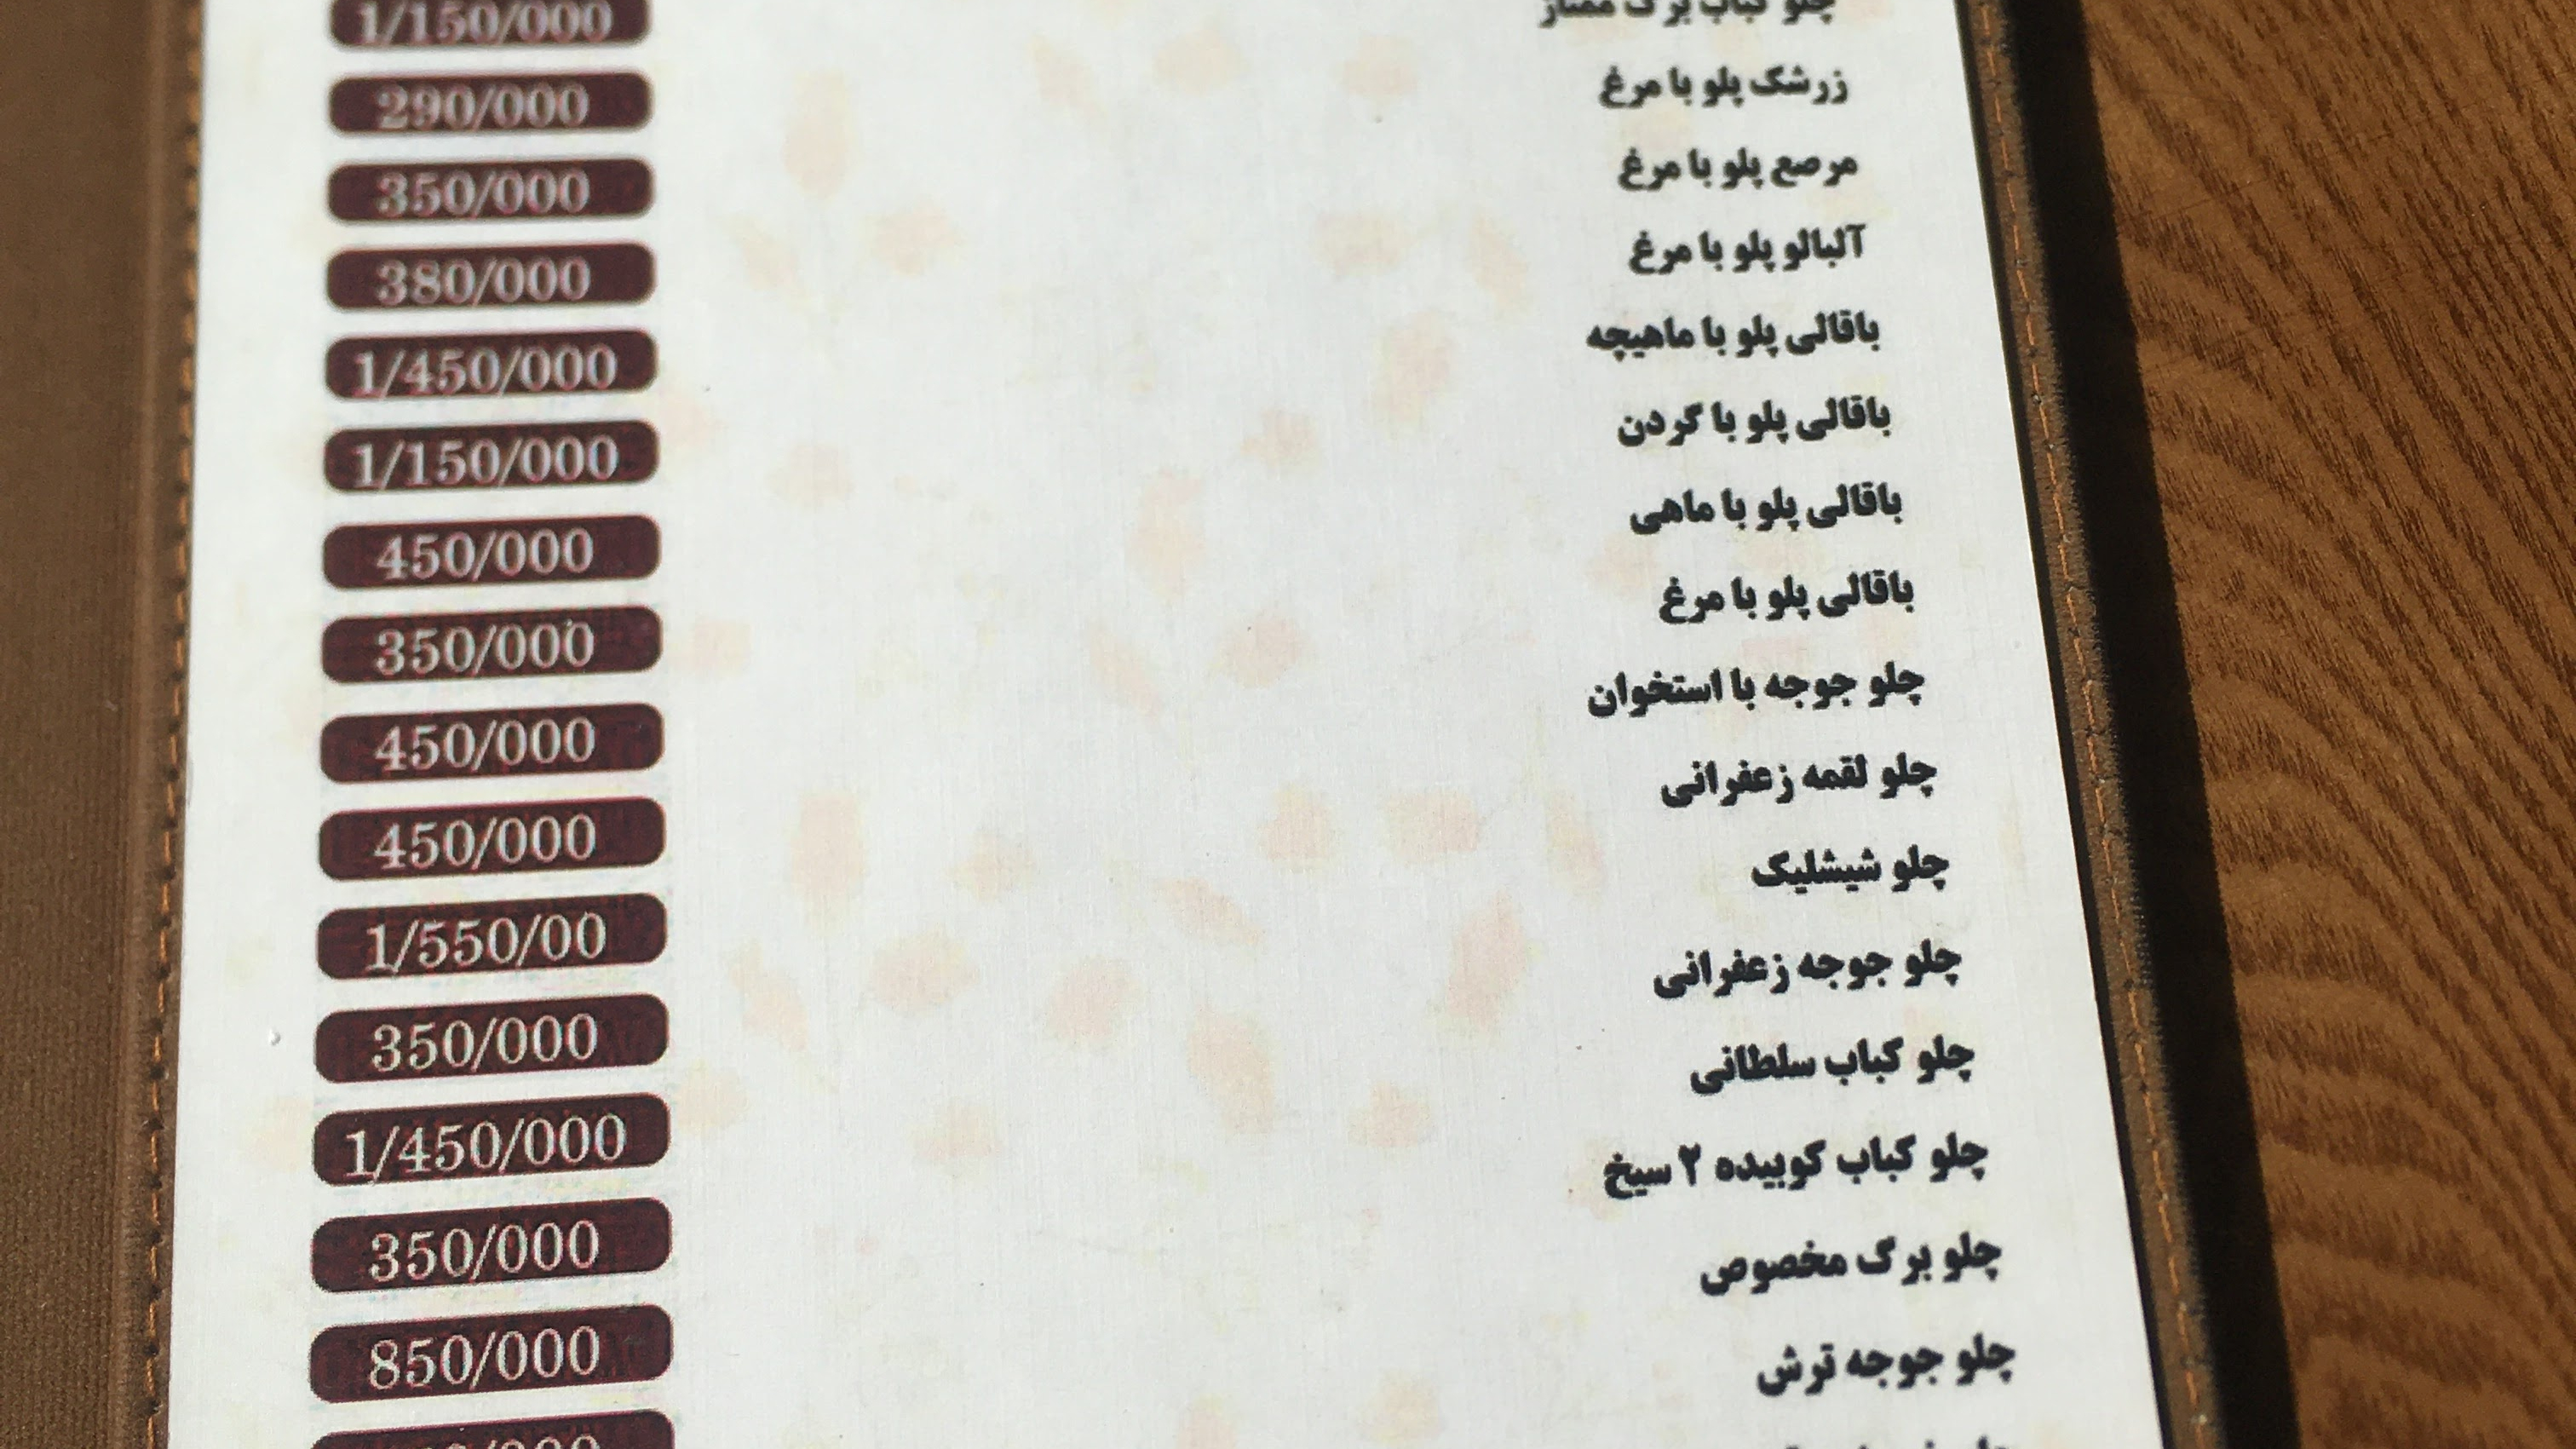 چلو کباب برگ ممتاز 1/150/000
زرشک پلو با مرغ 290/000
مرصع پلو با مرغ 350/000
آلبالو پلو با مرغ 380/000
باقالی پلو با ماهیچه 1/450/000
باقالی پلو با گردن 1/150/000
باقالی پلو با ماهی 450/000
باقالی پلو با مرغ 350/000
چلو جوجه با استخوان 450/000
چلو لقمه زعفرانی 450/000
چلو شیشلیک 1/550/00
چلو جوجه زعفرانی 350/000
چلو کباب سلطانی 1/450/000
چلو کباب کوبیده ۲ سیخ 350/000
چلو برگ مخصوص 850/000
چلو جوجه ترش